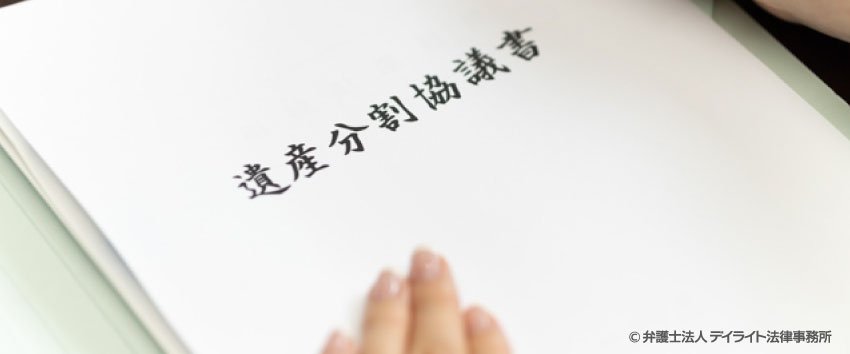 遺産分割協議書
© 弁護士法人 デイライト法律事務所